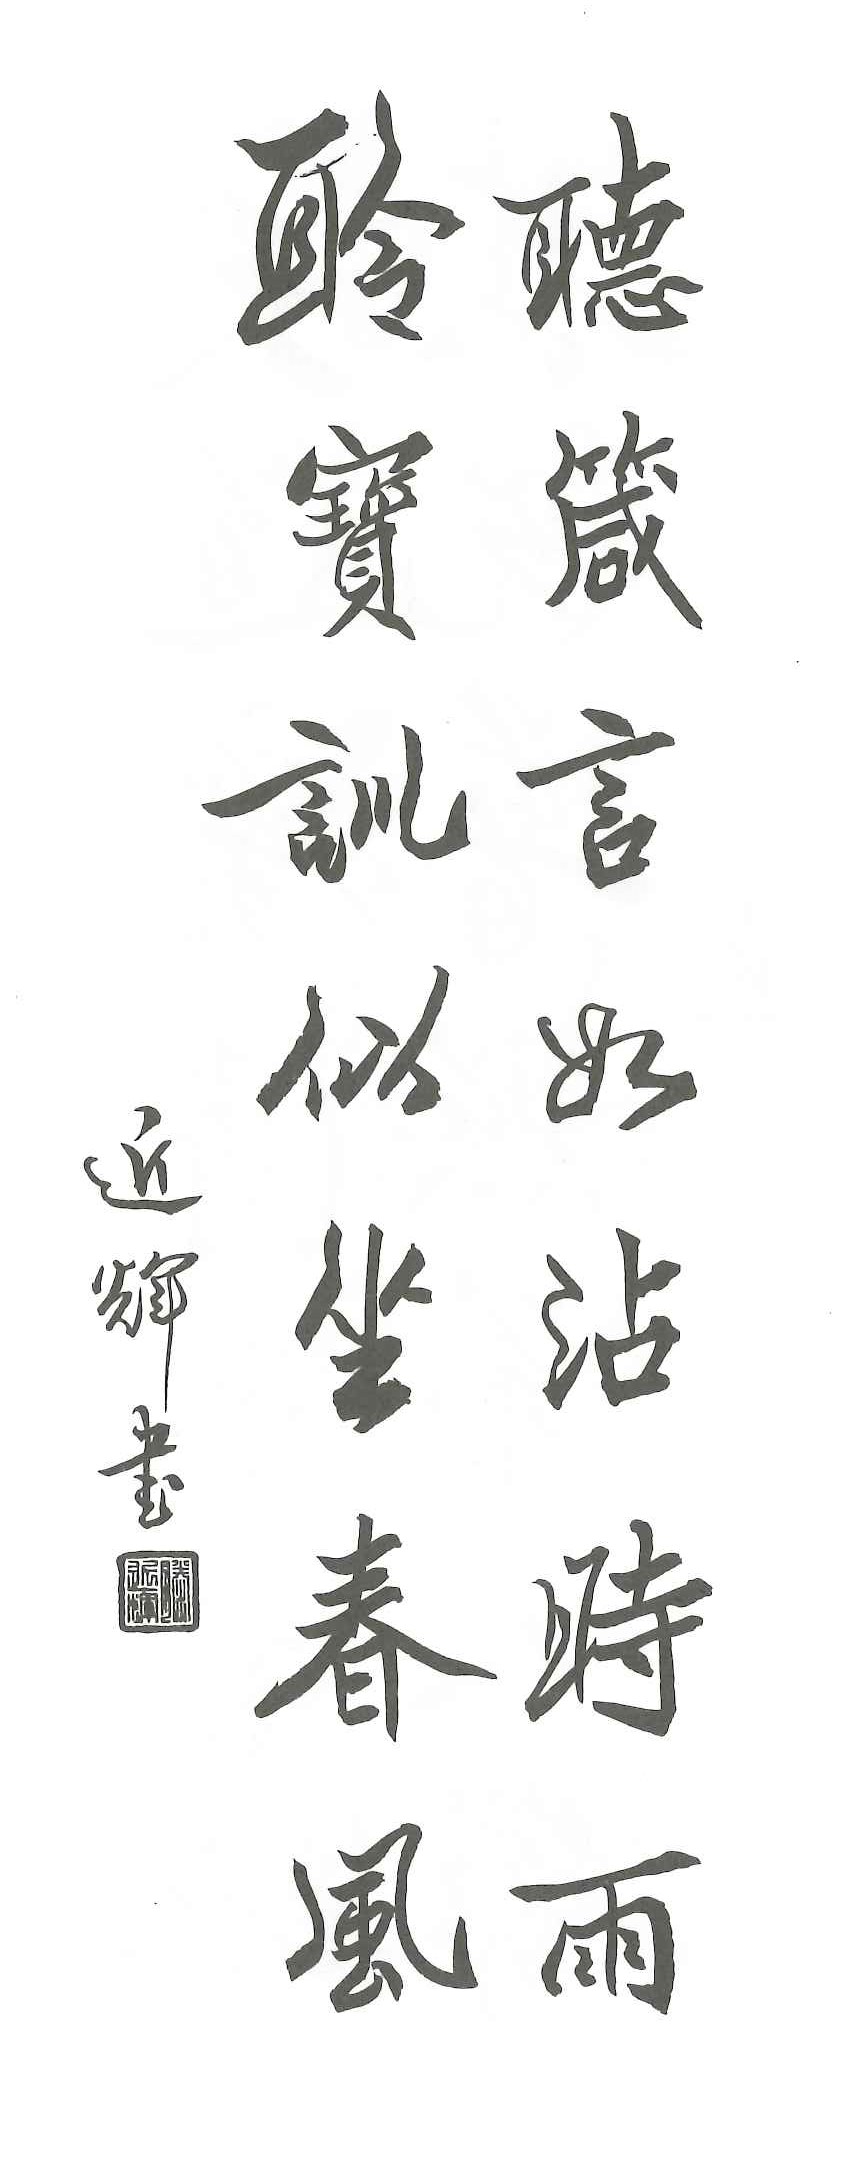 聽箴言如沾時雨
聆寶訓似坐春風
近輝書